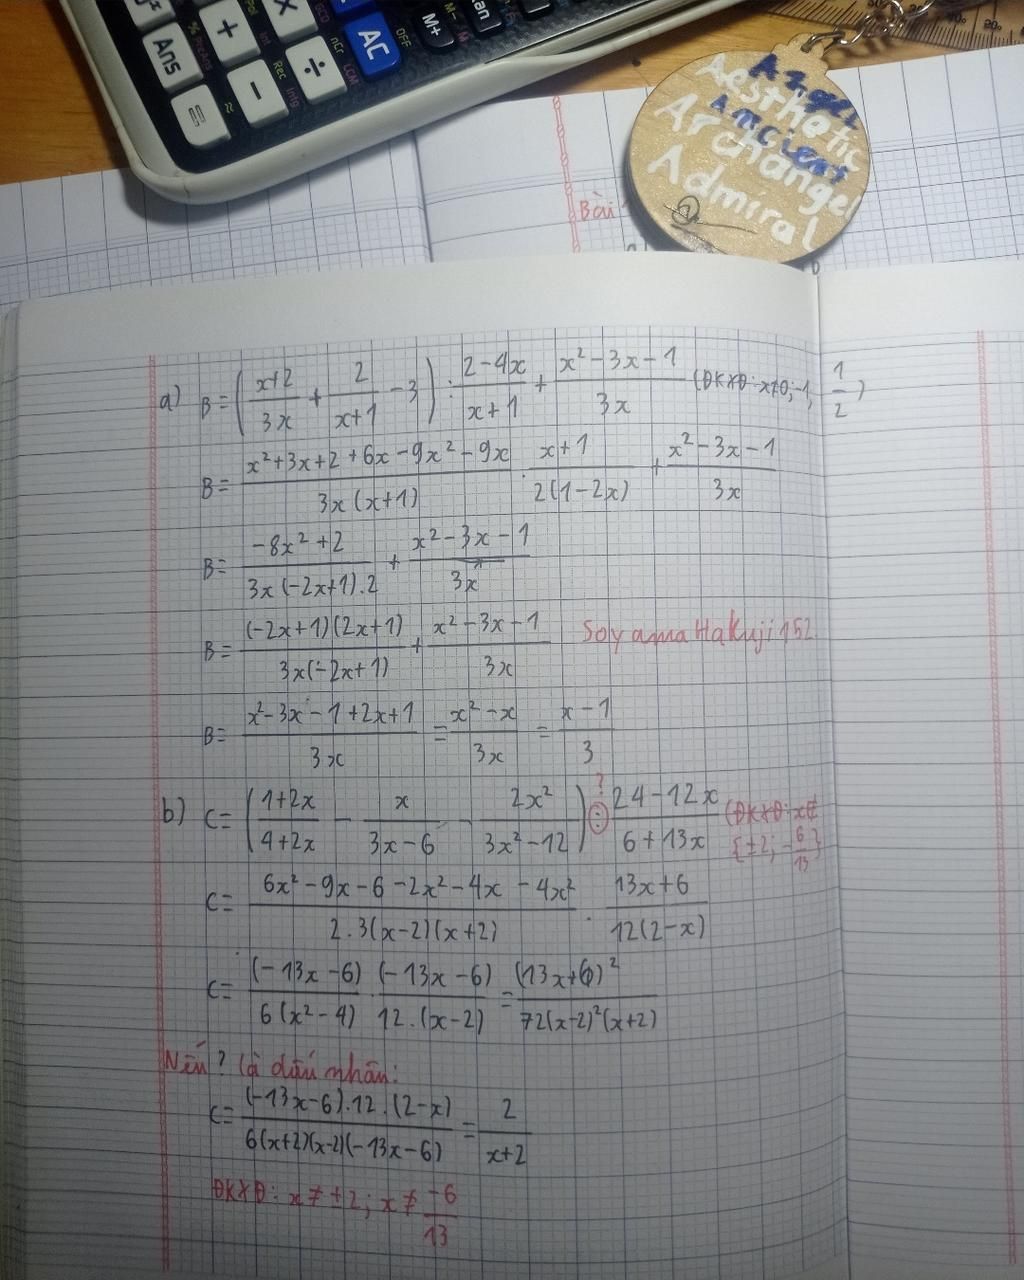 Ans
+
−
=
×
÷
AC
OFF
M+
%
Pol
Rec
nCr
GCD
LCM
Int
Intg
Angel
Aesthetic
Ancient
Archangel
Admiral
Bài
a) B = ( (x+2)/(3x) + 2/(x+1) − 3 ) : (2−4x)/(x+1) + (x² − 3x − 1)/(3x) (ĐKXĐ: x≠0; −1, 1/2)
B = (x²+3x+2+6x−9x²−9x)/(3x(x+1)) · (x+1)/(2(1−2x)) + (x²−3x−1)/(3x)
B = (−8x²+2)/(3x(−2x+1).2) + (x²−3x−1)/(3x)
B = ((−2x+1)(2x+1))/(3x(−2x+1)) + (x²−3x−1)/(3x) Soyama Hakuji 152
B = (x²−3x−1+2x+1)/(3x) = (x²−x)/(3x) = (x−1)/3
b) C = ( (1+2x)/(4+2x) − x/(3x−6) − 2x²/(3x²−12) ) : ? (24−12x)/(6+13x) (ĐKXĐ: x∉ {±2; −6/13}
C = (6x²−9x−6−2x²−4x−4x²)/(2.3(x−2)(x+2)) · (13x+6)/(12(2−x))
C = (−13x−6)/(6(x²−4)) · (−13x−6)/(12.(x−2)) = (13x+6)²/(72(x−2)²(x+2))
Nếu ? là dấu nhân:
C = ((−13x−6).12.(2−x))/(6(x+2)(x−2)(−13x−6)) = 2/(x+2)
ĐKXĐ: x ≠ ±2; x ≠ −6/13